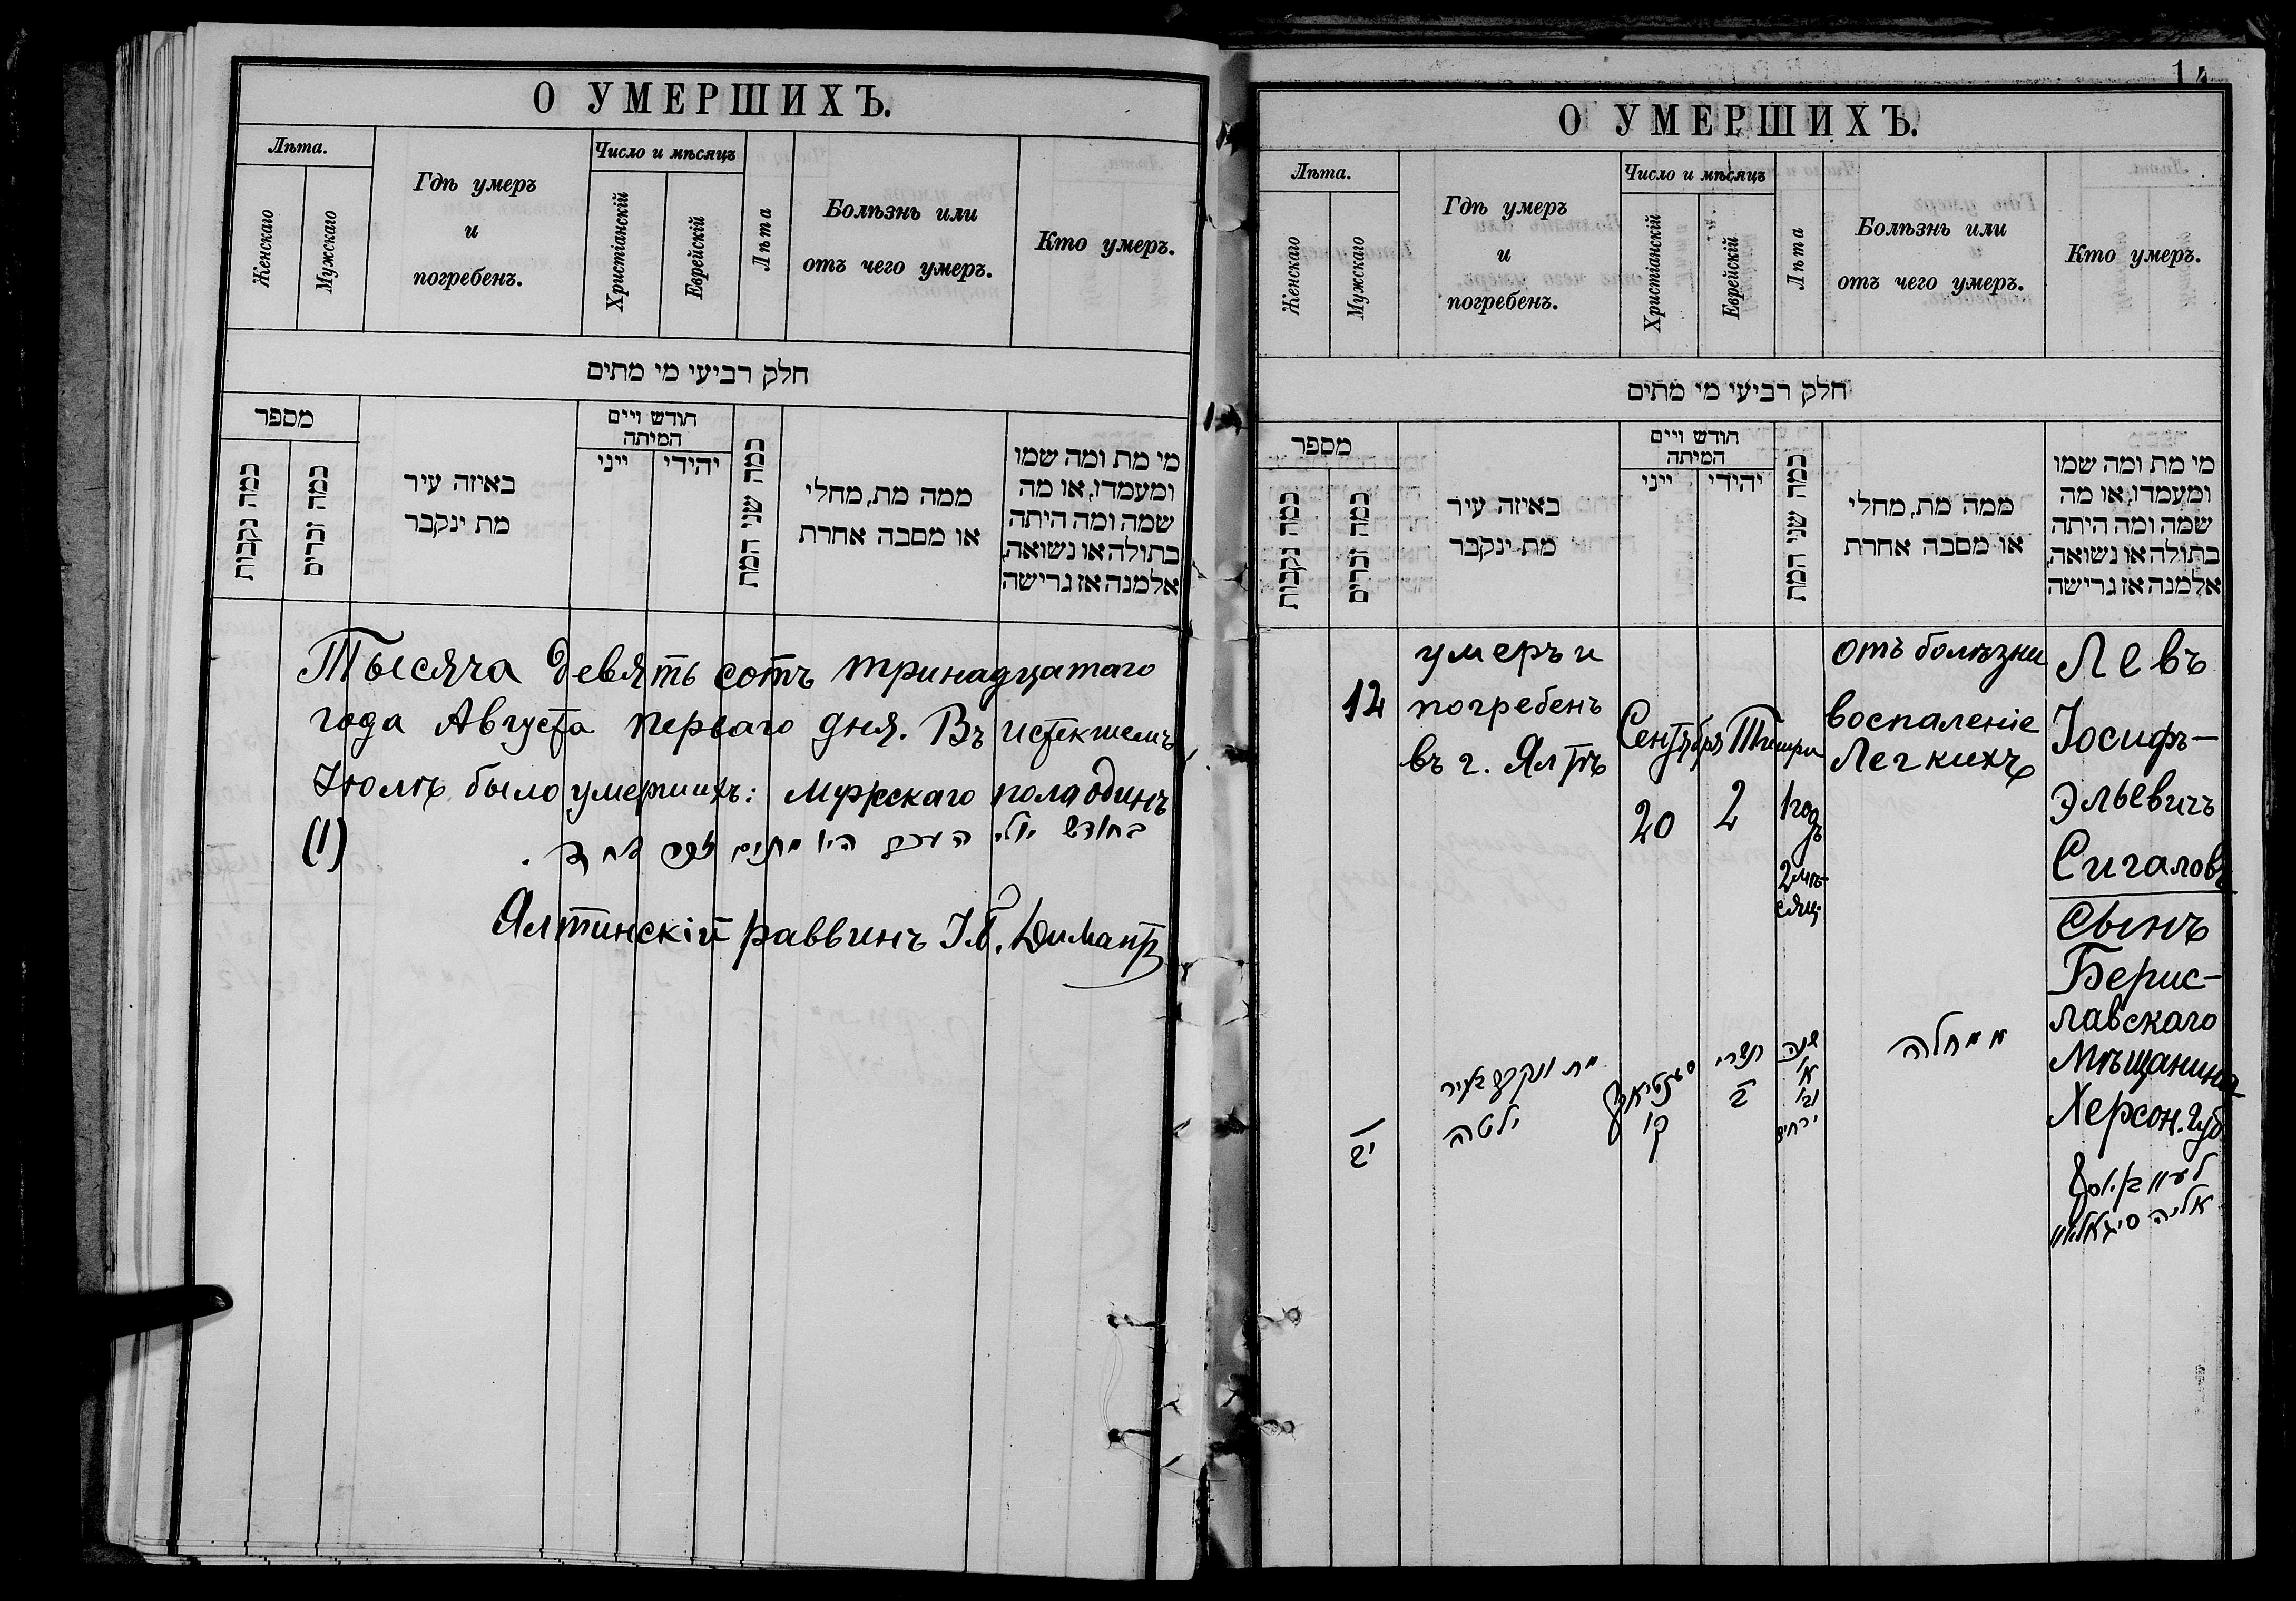 О УМЕРШИХЪ.
Лѣта.
Женскаго
Мужскаго
Гдѣ умеръ
и
погребенъ.
Число и мѣсяцъ
Христіанскій
Еврейскій
Лѣта
Болѣзнь или
отъ чего умеръ.
Кто умеръ.
חלק רביעי מי מתים
מספר
כמה נקבות
כמה זכרים
באיזה עיר
מת ינקבר
חודש ויים
המיתה
ייני
יהידי
כמה שני המת
ממה מת, מחלי
או מסבה אחרת
מי מת ומה שמו
ומעמדו, או מה
שמה ומה היתה
בתולה או נשואה,
אלמנה אז גרישה
Тысяча девять сотъ тринадцатаго
года Августа перваго дня. Въ истекшемъ
Іюлѣ было умершихъ: мужскаго пола одинъ
(1)
בחודש יולי העבר היו מתים זכר אחד.
Ялтинскій раввинъ
14
О УМЕРШИХЪ.
Лѣта.
Женскаго
Мужскаго
Гдѣ умеръ
и
погребенъ.
Число и мѣсяцъ
Христіанскій
Еврейскій
Лѣта
Болѣзнь или
отъ чего умеръ.
Кто умеръ.
חלק רביעי מי מתים
מספר
כמה נקבות
כמה זכרים
באיזה עיר
מת ינקבר
חודש ויים
המיתה
ייני
יהידי
כמה שני המת
ממה מת, מחלי
או מסבה אחרת
מי מת ומה שמו
ומעמדו, או מה
שמה ומה היתה
בתולה או נשואה,
אלמנה אז גרישה
12
умеръ и
погребенъ
въ г. Ялтѣ
Сентября
20
Тишри
2
1 годъ
2 мѣ-
сяц.
отъ болѣзни
воспаленіе
Легкихъ
Левъ
Іосифъ-
Эльевичъ
Сигаловъ
сынъ
Берис-
лавскаго
Мѣщанина
Херсон. губ
יב
מת ונקבר בעיר
ילטה
תשרי
ב
שנה
א'
וב'
ירחים
ממחלה
אליה סיגאלוו